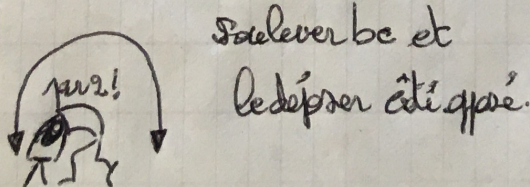 soulever bc et
par 2!
le déposer côté opposé.